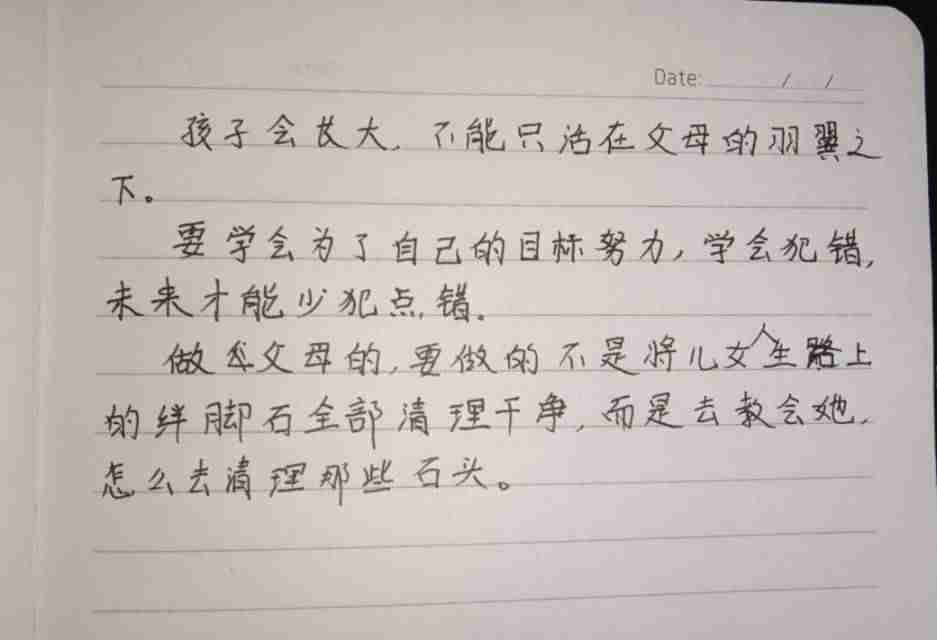 Date: / /
孩子会长大，不能只活在父母的羽翼之
下。
要学会为了自己的目标努力，学会犯错，
未来才能少犯点错。
做父母的，要做的不是将儿女人生路上
的绊脚石全部清理干净，而是去教会她，
怎么去清理那些石头。